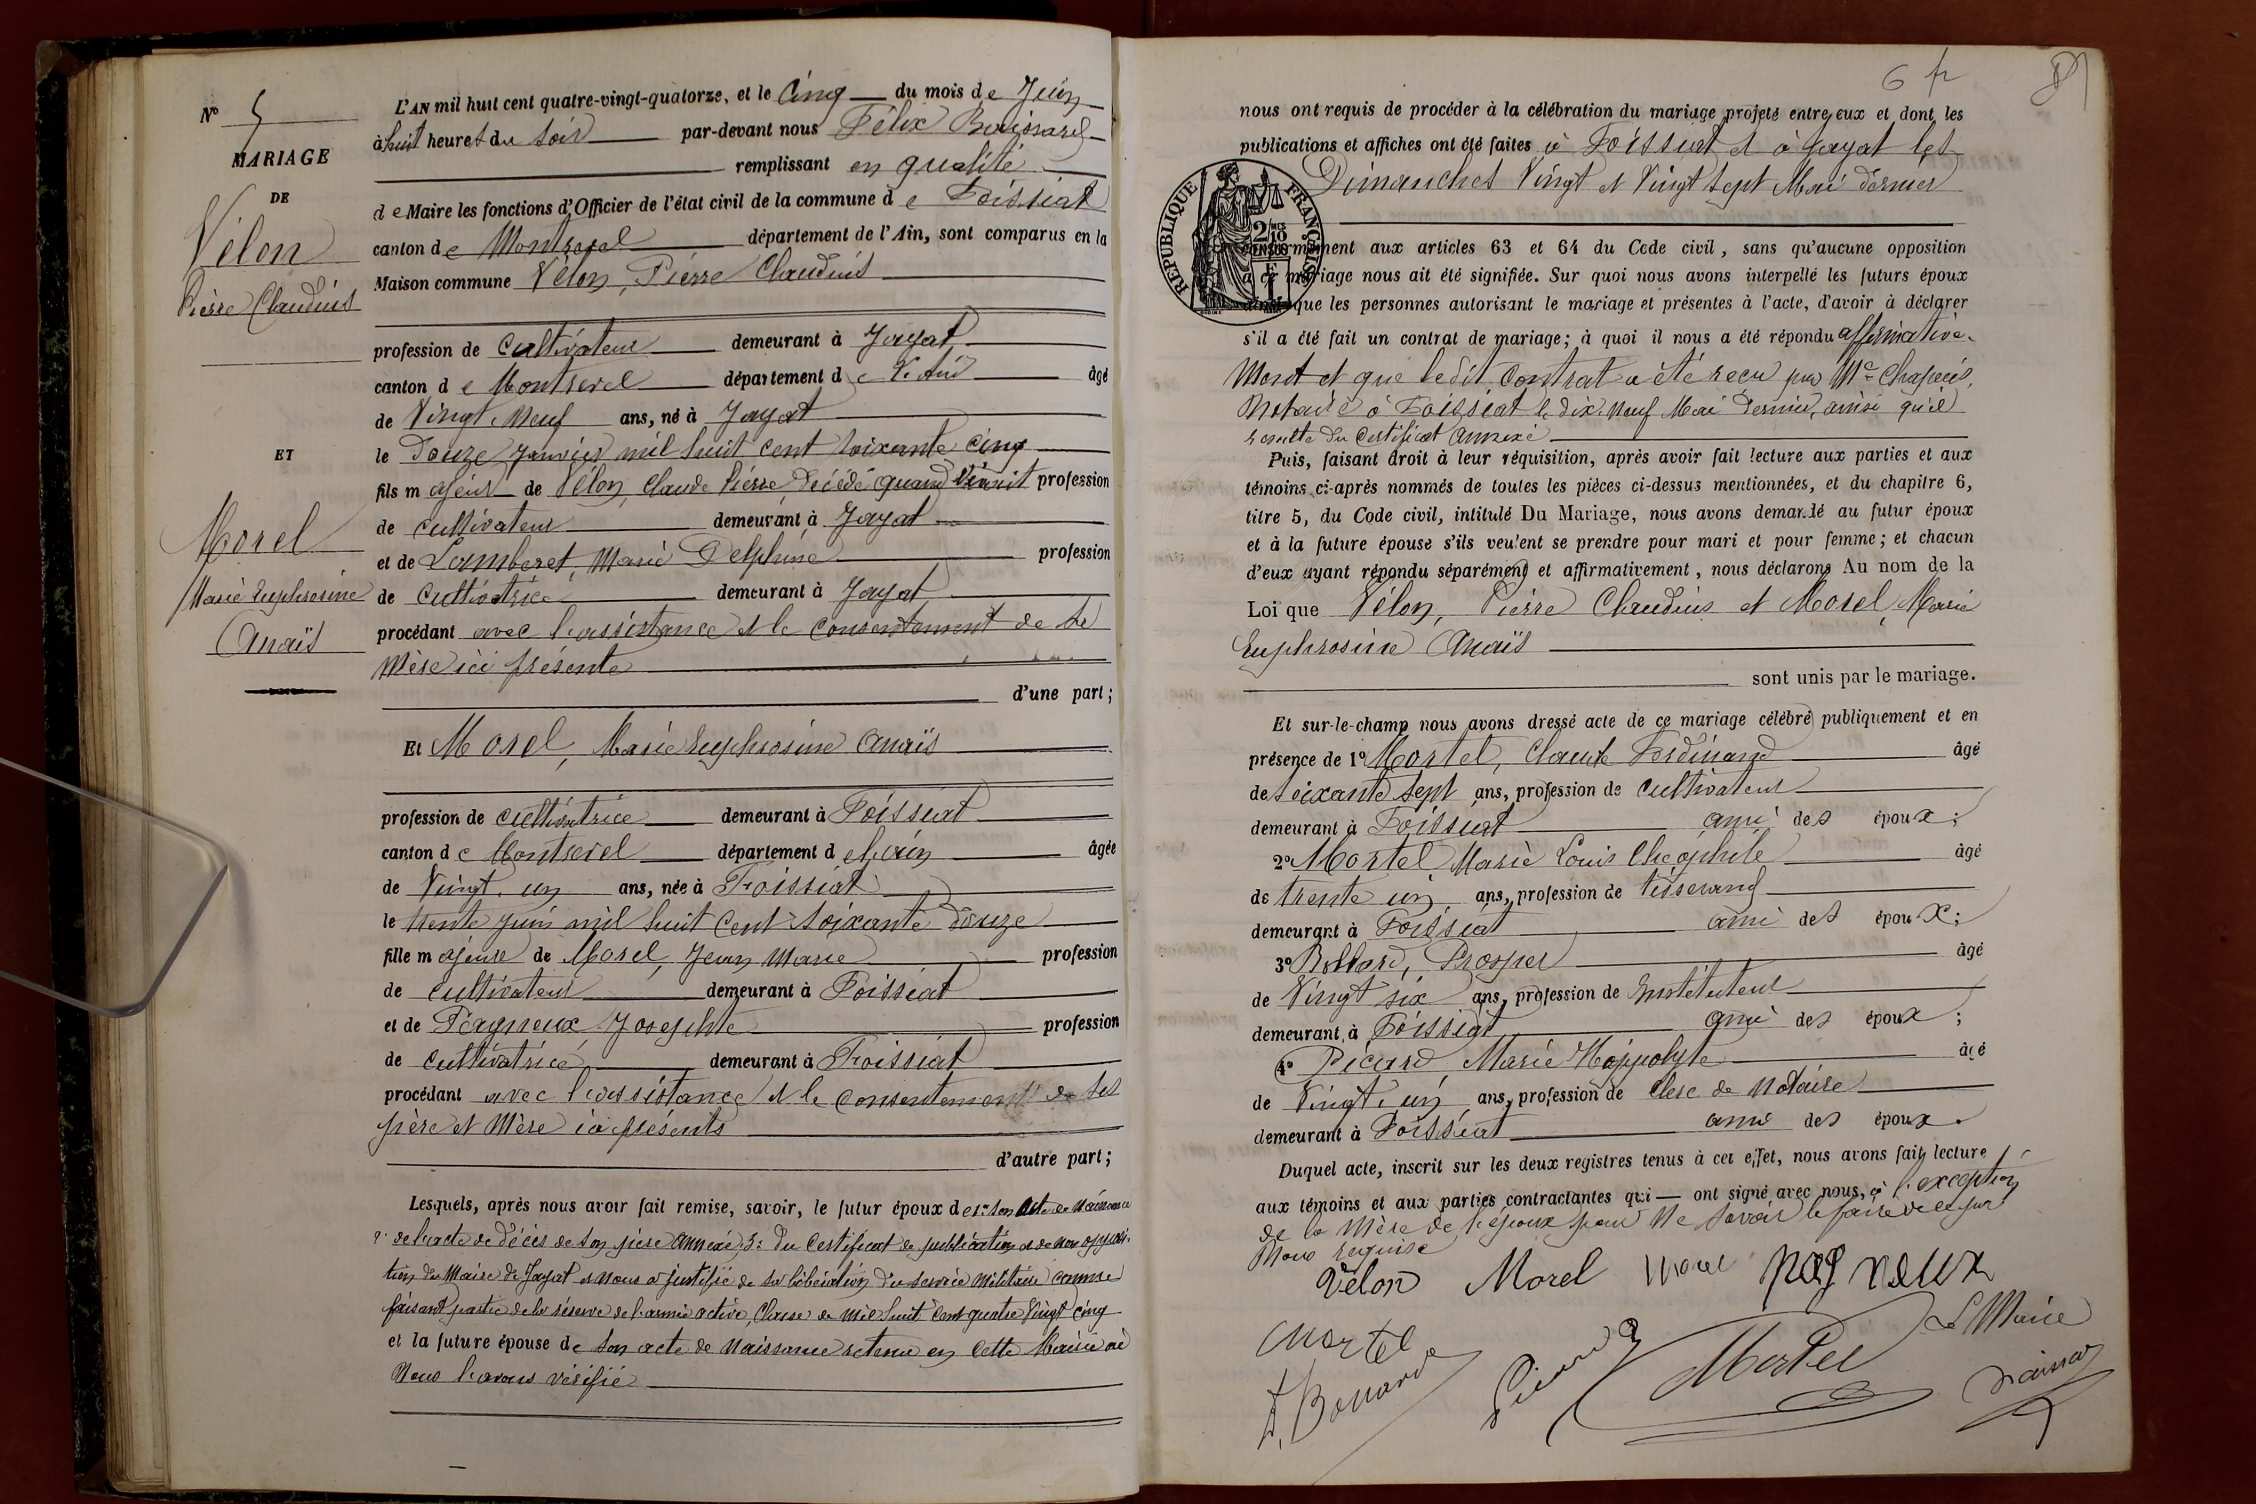 N° 5
MARIAGE
DE
Vélon
Pierre Claudius
ET
Morel
Marie Euphrosine
Anaïs
L'AN mil huit cent quatre-vingt-quatorze, et le Cinq du mois de Juin
à huit heures du soir par-devant nous Félix Buissard
remplissant en qualité
de Maire les fonctions d'Officier de l'état civil de la commune de Foissiat
canton de Montrevel département de l'Ain, sont comparus en la
Maison commune Vélon, Pierre Claudius
profession de Cultivateur demeurant à Jayat
canton de Montrevel département de l'Ain âgé
de Vingt-neuf ans, né à Jayat
le Douze Janvier mil huit cent soixante cinq
fils majeur de Vélon, Claude Pierre, décédé quand vivait profession
de cultivateur demeurant à Jayat
et de Lamberet, Marie Delphine profession
de Cultivatrice demeurant à Jayat
procédant avec l'assistance et le consentement de sa
Mère ici présente
d'une part;
Et Morel, Marie Euphrosine Anaïs
profession de cultivatrice demeurant à Foissiat
canton de Montrevel département de l'Ain âgée
de Vingt-un ans, née à Foissiat
le trente juin mil huit cent soixante douze
fille majeure de Morel, Jean Marie profession
de cultivateur demeurant à Foissiat
et de Pagneux Josephte profession
de cultivatrice demeurant à Foissiat
procédant avec l'assistance et le consentement de ses
père et Mère ici présents
d'autre part;
Lesquels, après nous avoir fait remise, savoir, le futur époux de 1° son Acte de Naissance
2° de l'acte de Décès de son père annexé, 3° Du Certificat de publication et de non opposi-
tion du Maire de Jayat et nous a justifié de sa libération du service militaire comme
faisant partie de la réserve de l'armée active, Classe de mil huit cent quatre vingt cinq
et la future épouse de son acte de Naissance retenu en cette Mairie où
Nous l'avons vérifié
6 fr
nous ont requis de procéder à la célébration du mariage projeté entre eux et dont les
publications et affiches ont été faites à Foissiat et à Jayat les
Dimanches Vingt et Vingt sept Mai dernier
RÉPUBLIQUE FRANÇAISE
conformément aux articles 63 et 64 du Code civil, sans qu'aucune opposition
à ce mariage nous ait été signifiée. Sur quoi nous avons interpellé les futurs époux
ainsi que les personnes autorisant le mariage et présentes à l'acte, d'avoir à déclarer
s'il a été fait un contrat de mariage; à quoi il nous a été répondu affirmative-
Ment et que ledit Contrat a été reçu par Me Chapuis,
Notaire à Foissiat le dix-neuf Mai dernier, ainsi qu'il
résulte du Certificat Annexé
Puis, faisant droit à leur réquisition, après avoir fait lecture aux parties et aux
témoins ci-après nommés de toutes les pièces ci-dessus mentionnées, et du chapitre 6,
titre 5, du Code civil, intitulé Du Mariage, nous avons demandé au futur époux
et à la future épouse s'ils veulent se prendre pour mari et pour femme; et chacun
d'eux ayant répondu séparément et affirmativement, nous déclarons Au nom de la
Loi que Vélon, Pierre Claudius et Morel, Marie
Euphrosine Anaïs
sont unis par le mariage.
Et sur-le-champ nous avons dressé acte de ce mariage célébré publiquement et en
présence de 1° Mortel, Claude Ferdinand âgé
de soixante sept ans, profession de cultivateur
demeurant à Foissiat ami des époux;
2° Mortel, Marie Louis Théophile âgé
de trente un ans, profession de tisserand
demeurant à Foissiat ami des époux;
3° Bollard, Prosper âgé
de Vingt six ans, profession de Instituteur
demeurant à Foissiat ami des époux;
4° Picard, Marie Hippolyte âgé
de Vingt-un ans, profession de Clerc de Notaire
demeurant à Foissiat ami des époux.
Duquel acte, inscrit sur les deux registres tenus à cet effet, nous avons fait lecture
aux témoins et aux parties contractantes qui ont signé avec nous, à l'exception
de la Mère de l'époux pour Ne savoir le faire de ce par
Nous requise
Vélon Morel Morel pagneux
Mortel
Mortel
Le Maire